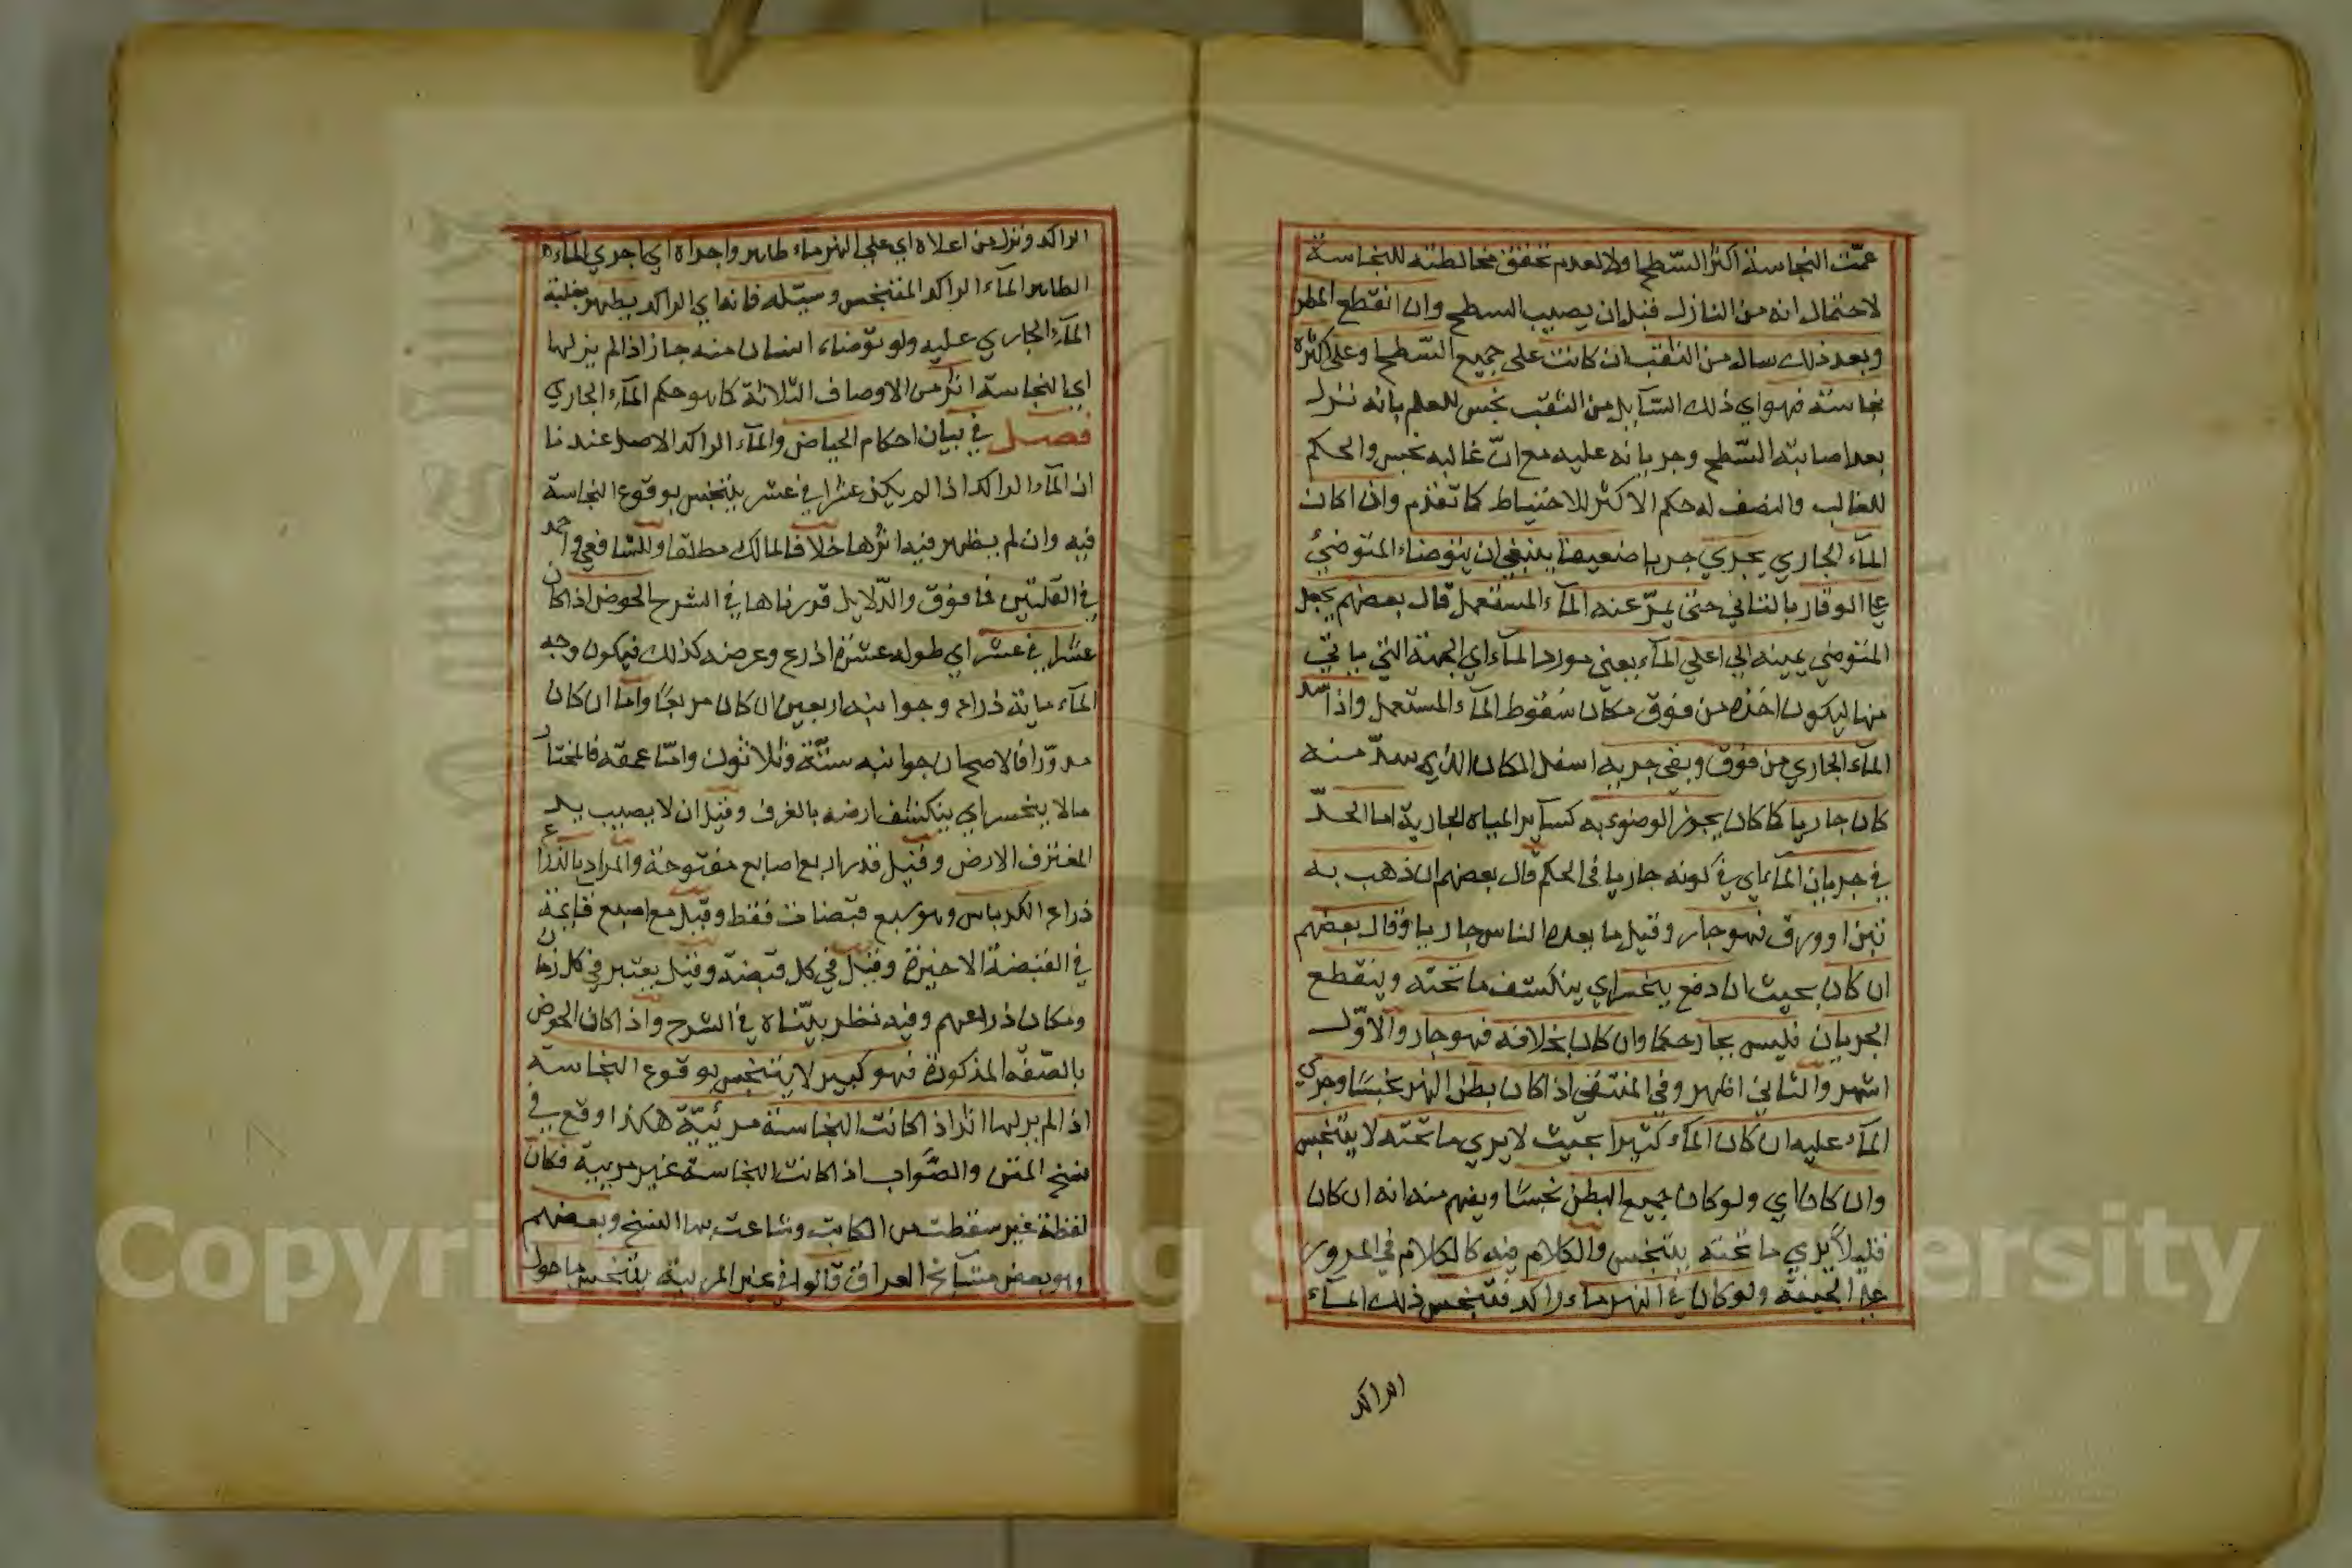 عمّت النجاسة اكثر السّطح اولا لعدم تحقق مخالطته للنجاسة
لاحتمال انه من النازل قبل ان يصيب السطح وان انقطع المطر
وبعد ذلك سال من الثقب ان كانت على جميع السّطح او على اكثره
نجاسة فهو اي ذلك السّآيل من الثقب نجس للعلم بانه نزل
بعد اصابته السّطح وجريانه عليه مع انّ غالبه نجس والحكم
للغالب والنصف له حكم الاكثر للاحتياط كما تقدم واذا كان
المآء الجاري يجري جريا ضعيفا ينبغي ان يتوضاء المتوضئ
على الوقار بالتاني حتى يمرّ عنه المآء المستعمل قال بعضهم يجعل
المتوضي يمينه الى اعلى المآء يعني مورد المآء اي الجهة التي ياتي
منها ليكون اخذه من فوق مكان سقوط المآء المستعمل واذا سد
المآء الجاري من فوق وبقي جريه اسفل المكان الذي سدّ منه
كان جاريا كما كان يجوز الوضوء به كسآير المياه الجارية اما الحدّ
في جريان المآء اي في كونه جاريا في الحكم قال بعضهم ان ذهب به
تبن او ورق فهو جار وقيل ما يعده الناس جاريا وقال بعضهم
ان كان بحيث ان دفع ينحسر اي ينكشف ما تحته وينقطع
الجريان فليس بجار حكما وان كان بخلافه فهو جار والاوّل
اشهر والثاني اظهر وفي المنتقى اذا كان بطن النهر نجسًا وجرى
المآء عليه ان كان المآء كثيرا بحيث لا يرى ما تحته لا يتنجس
وان كان اي ولو كان جميع البطن نجسًا ويفهم منه انه ان كان
قليلاً يرى ما تحته يتنجس والكلام فيه كالكلام في المرور
على الجيفة ولو كان في النهر مآء راكد فتنجس ذلك المآء
الراكد
الراكد ونزل من اعلاه اي على النهر مآء طاهر واجراه اي اجرى المآء
الطاهر المآء الراكد المتنجس وسيّله فانه اي الراكد يطهر بغلبة
المآء الجاري عليه ولو توضاء انسان منه جاز اذا لم ير لها
اي النجاسة اثر من الاوصاف الثلاثة كما هو حكم المآء الجاري
فصل في بيان احكام الحياض والمآء الراكد الاصل عندنا
ان المآء الراكد اذا لم يكن عشرا في عشر يتنجس بوقوع النجاسة
فيه وان لم يظهر فيه اثرها خلافا لمالك مطلقا وللشافعي واحمد
في القلتين فما فوق والدّلايل قررناها في الشرح الحوض اذا كان
عشرا في عشر اي طوله عشرة اذرع وعرضه كذلك فيكون وجه
المآء ماية ذراع وجوانبه اربعين ان كان مربعًا واما ان كان
مدوّرا فالاصح ان جوانبه ستّة وثلاثون وامّا عمقه فالمختار
ما لا ينحسر اي ينكشف ارضه بالغرف وقيل ان لا يصيب يد
المغترف الارض وقيل قدر اربع اصابع مفتوحة والمراد بالذراع
ذراع الكرباس وهو سبع قبضات فقط وقيل مع اصبع قايمة
في القبضة الاخيرة وقيل في كل قبضة وقيل يعتبر في كل زمان
ومكان ذراعهم وفيه نظر بيّناه في الشرح واذا كان الحوض
بالصّفة المذكورة فهو كبير لا يتنجس بوقوع النجاسة
اذا لم ير لها اثر اذا كانت النجاسة مرئيّة هكذا وقع في
نسخ المتن والصّواب اذا كانت النجاسة غير مريية فكان
لفظة غير سقطت من الكاتب وشاعت بها النسخ وبعضهم
وهو بعض مشايخ العراق قالوا في غير المريية يتنجس ما حول